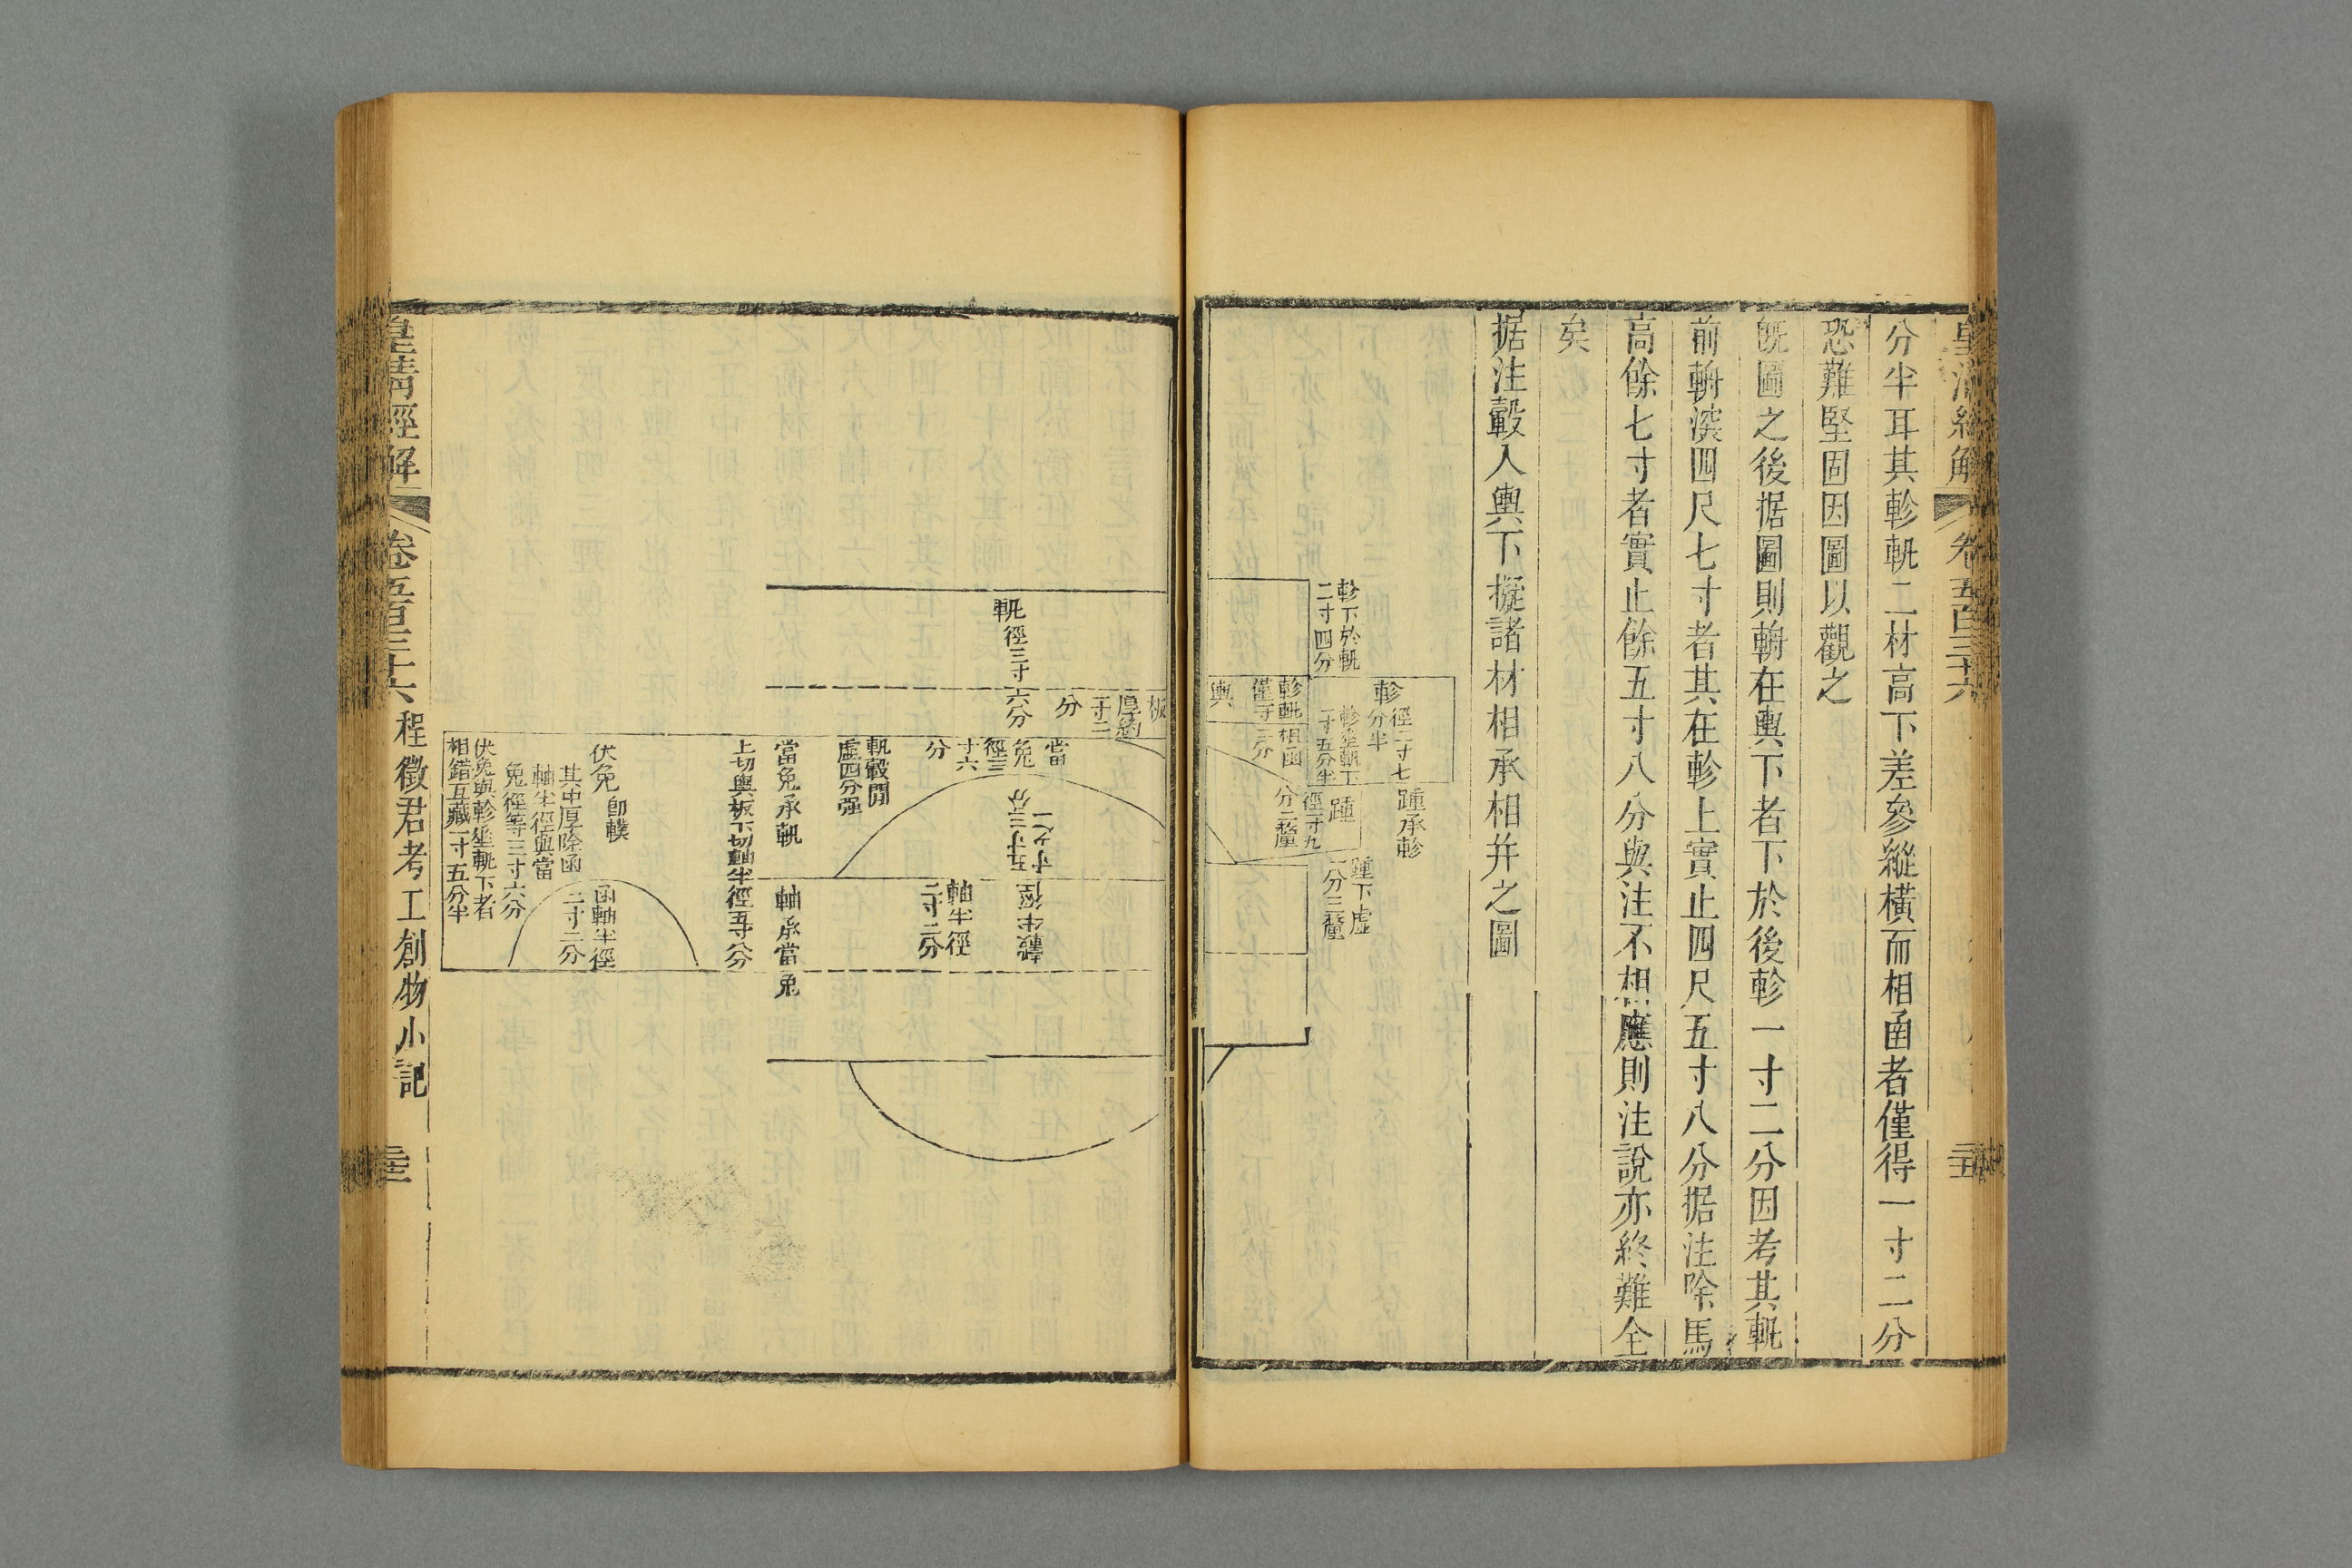 皇清經解 卷五百三十六
分半耳其軫軓二材高下差參縱橫而相函者僅得一寸二分
恐難堅固因圖以觀之
旣圖之後据圖則輈在輿下者下於後軫一寸二分因考其軓
前輈深四尺七寸者其在軫上實止四尺五寸八分据注除馬
高餘七寸者實止餘五寸八分與注不相應則注說亦終難全
矣
据注轂入輿下擬諸材相承相并之圖
踵承軫
軫
徑二寸七
分半
踵下虛
一分三釐
軫下於軓
二寸四分
軫垂軓下
一寸五分半
踵
徑一寸九
分二釐
軫軓相函
僅一寸二分
輿
板
厚約
一寸二
分
軓徑三寸六分
當
兔
徑三
寸六
分
轂半徑
五寸三分
寸之一
軸半徑
二寸二分
軓轂閒
虛四分强
當兔承軓
軸承當兔
上切輿板下切軸半徑五寸八分
伏兔卽轐
其中厚除函
軸半徑與當
兔徑等三寸六分
函軸半徑
二寸二分
伏兔與軫垂軓下者
相錯互藏一寸五分半
皇淸經解 卷五百三十六 程徵君考工創物小記